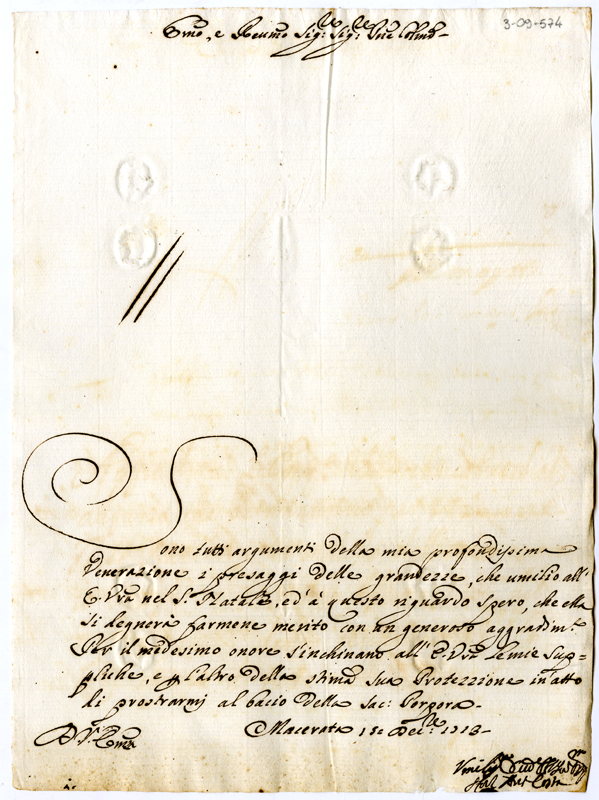 3-09-574
Emo, e Reumo Sig:re Sig:re Pne Colmo-
Sono tutti argumenti della mia profondissima
Venerazione i presaggi delle grandezze, che umilio all'
E. Vra nel S. Natale, ed'à questo riguardo spero, che ella
si degnerà farmene merito con un generoso aggradim.to
Per il medesimo onore s'inchinano all'E. Vra le mie Sup=
pliche, e p l'altro della stima sua Protezzione in'atto
di prostrarmi al bacio della Sac: Porpora-
Macerata 15 Decbre 1713-
D. V. Emza